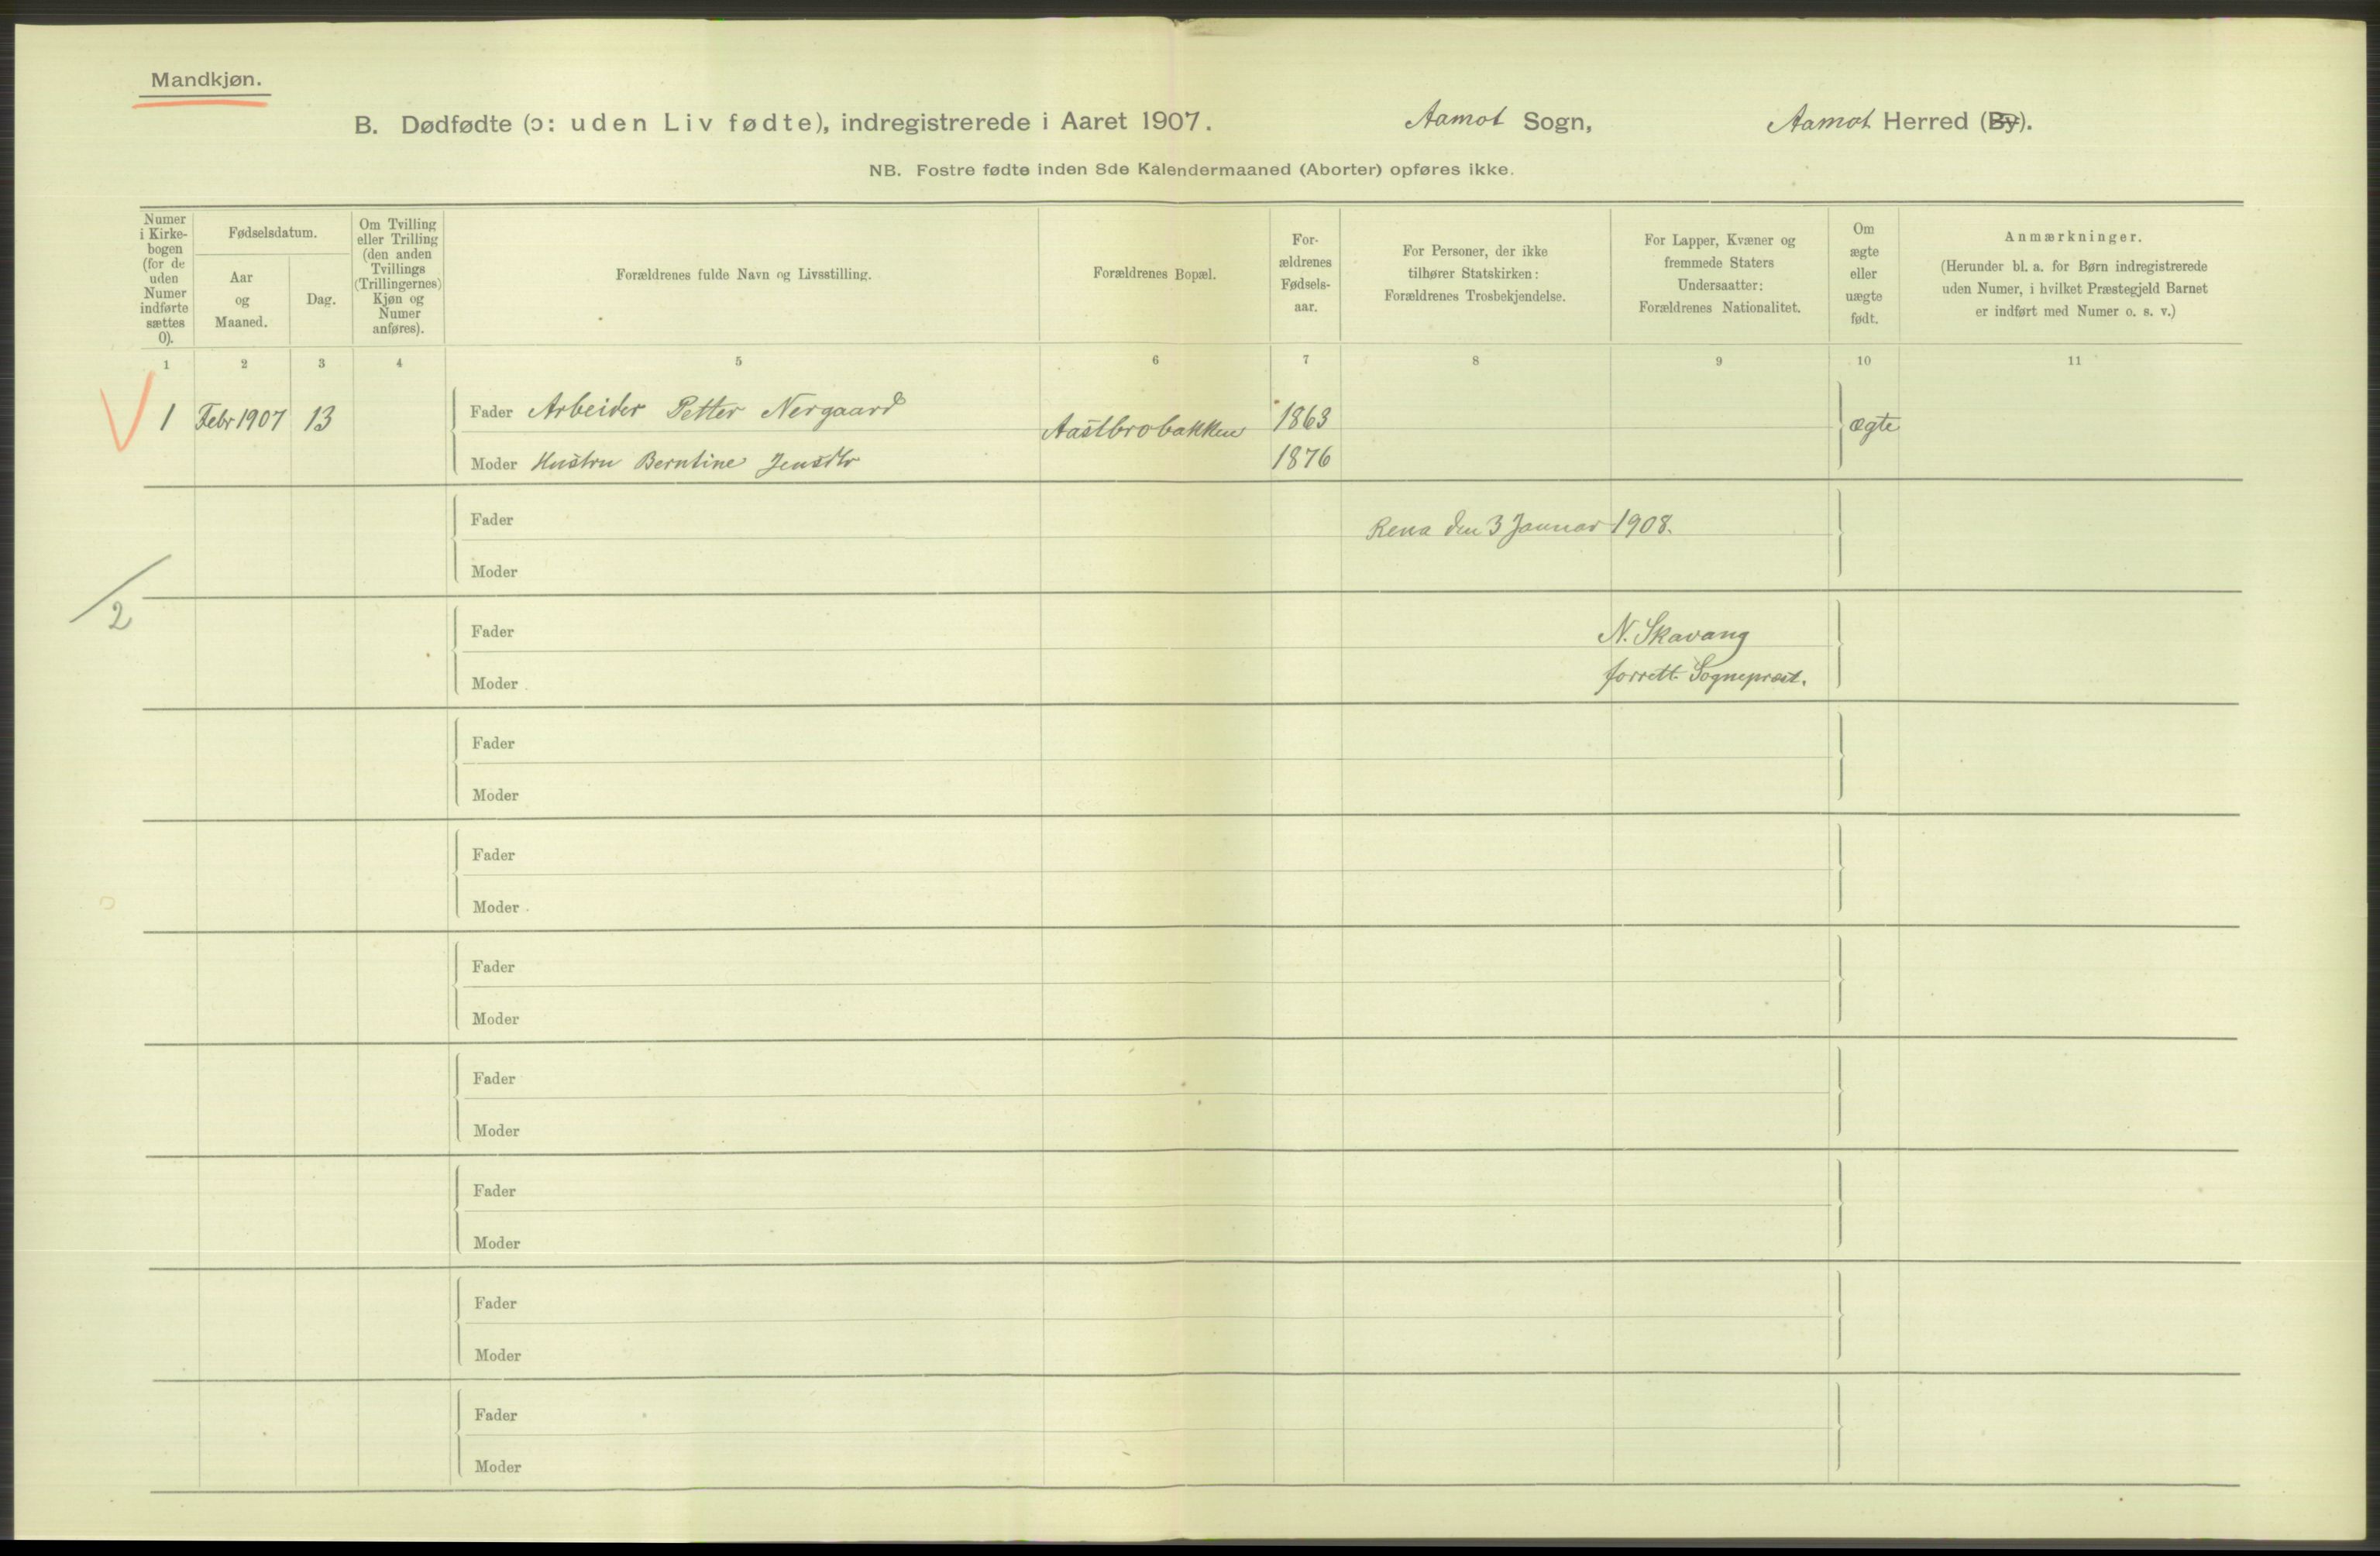 Mandkjøn.
B. Dødfødte (ɔ: uden Liv fødte), indregistrerede i Aaret 1907. Aamot Sogn, Aamot Herred (By).
NB. Fostre fødte inden 8de Kalendermaaned (Aborter) opføres ikke.
Numer
i Kirke-
bogen
(for de
uden
Numer
indførte
sættes
0).
Fødselsdatum.
Aar
og
Maaned.
Dag.
Om Tvilling
eller Trilling
(den anden
Tvillings
(Trillingernes)
Kjøn og
Numer
anføres).
Forældrenes fulde Navn og Livsstilling.
Forældrenes Bopæl.
For-
ældrenes
Fødsels-
aar.
For Personer, der ikke
tilhører Statskirken:
Forældrenes Trosbekjendelse.
For Lapper, Kvæner og
fremmede Staters
Undersaatter:
Forældrenes Nationalitet.
Om
ægte
eller
uægte
født.
Anmærkninger.
(Herunder bl. a. for Børn indregistrerede
uden Numer, i hvilket Præstegjeld Barnet
er indført med Numer o. s. v.)
1 2 3 4 5 6 7 8 9 10 11
1 Febr 1907 13 Fader Arbeider Petter Nergaard Aastbrobakken 1863 ægte
Moder Hustru Berntine Jensdtr 1876
Fader Rena den 3 Januar 1908.
Moder
2
Fader N. Skavang
Moder forrett. Sogneprest.
Fader
Moder
Fader
Moder
Fader
Moder
Fader
Moder
Fader
Moder
Fader
Moder
Fader
Moder